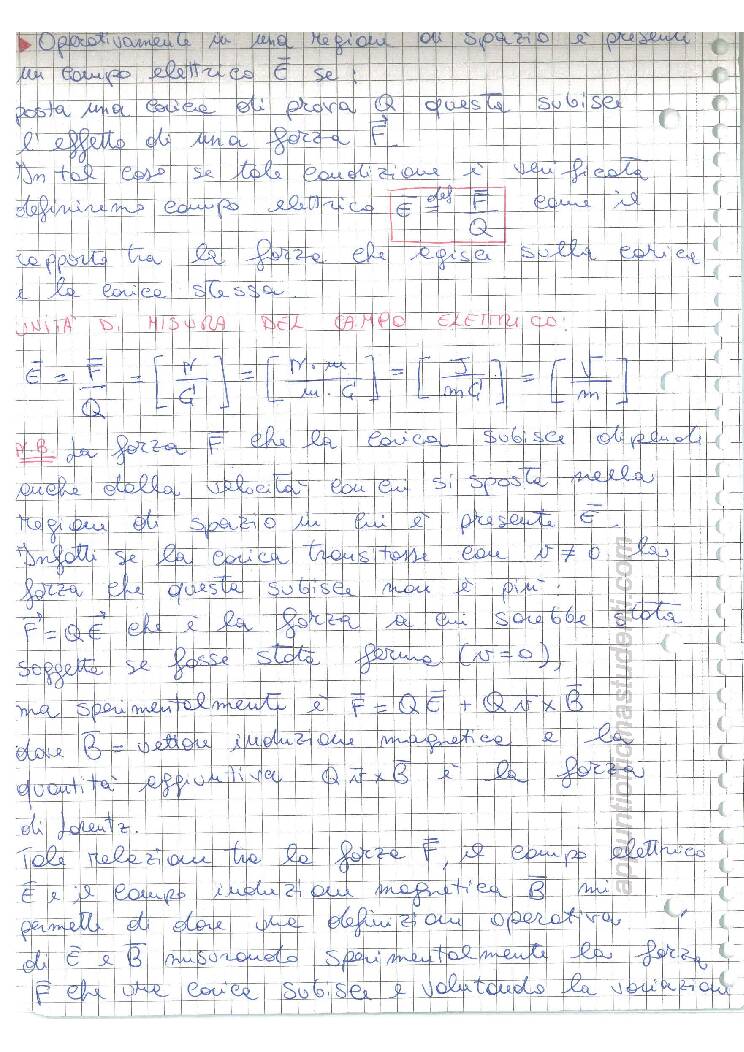 ▶ Operativamente in una regione di spazio è presente
un campo elettrico E̅ se:
posta una carica di prova Q questa subisce
l'effetto di una forza F⃗
In tal caso se tale condizione è verificata
definiremo campo elettrico E̅ ≝ F̅/Q come il
rapporto tra la forza che agisce sulla carica
e la carica stessa.
UNITÀ DI MISURA DEL CAMPO ELETTRICO:
E̅ = F̅/Q = [N/C] = [N·m/m·C] = [J/mC] = [V/m]
N.B. La forza F̅ che la carica subisce dipende
anche dalla velocità con cui si sposta nella
regione di spazio in cui è presente E̅
Infatti se la carica transitasse con v≠0 la
forza che questa subisce non è più:
F⃗=QE⃗ che è la forza a cui sarebbe stata
soggetta se fosse stata ferma (v=0),
ma sperimentalmente è F̅=QE̅ + Qv̅×B̅
dove B̅ = vettore induzione magnetica e la
quantità aggiuntiva Qv̅×B̅ è la forza
di Lorentz.
Tale relazione tra la forza F̅, il campo elettrico
E̅ e il campo induzione magnetica B̅ mi
permette di dare una definizione operativa
di E̅ e B̅ misurando sperimentalmente la forza
F̅ che una carica subisce e valutando la variazione
appuntiotticnastudenti.com